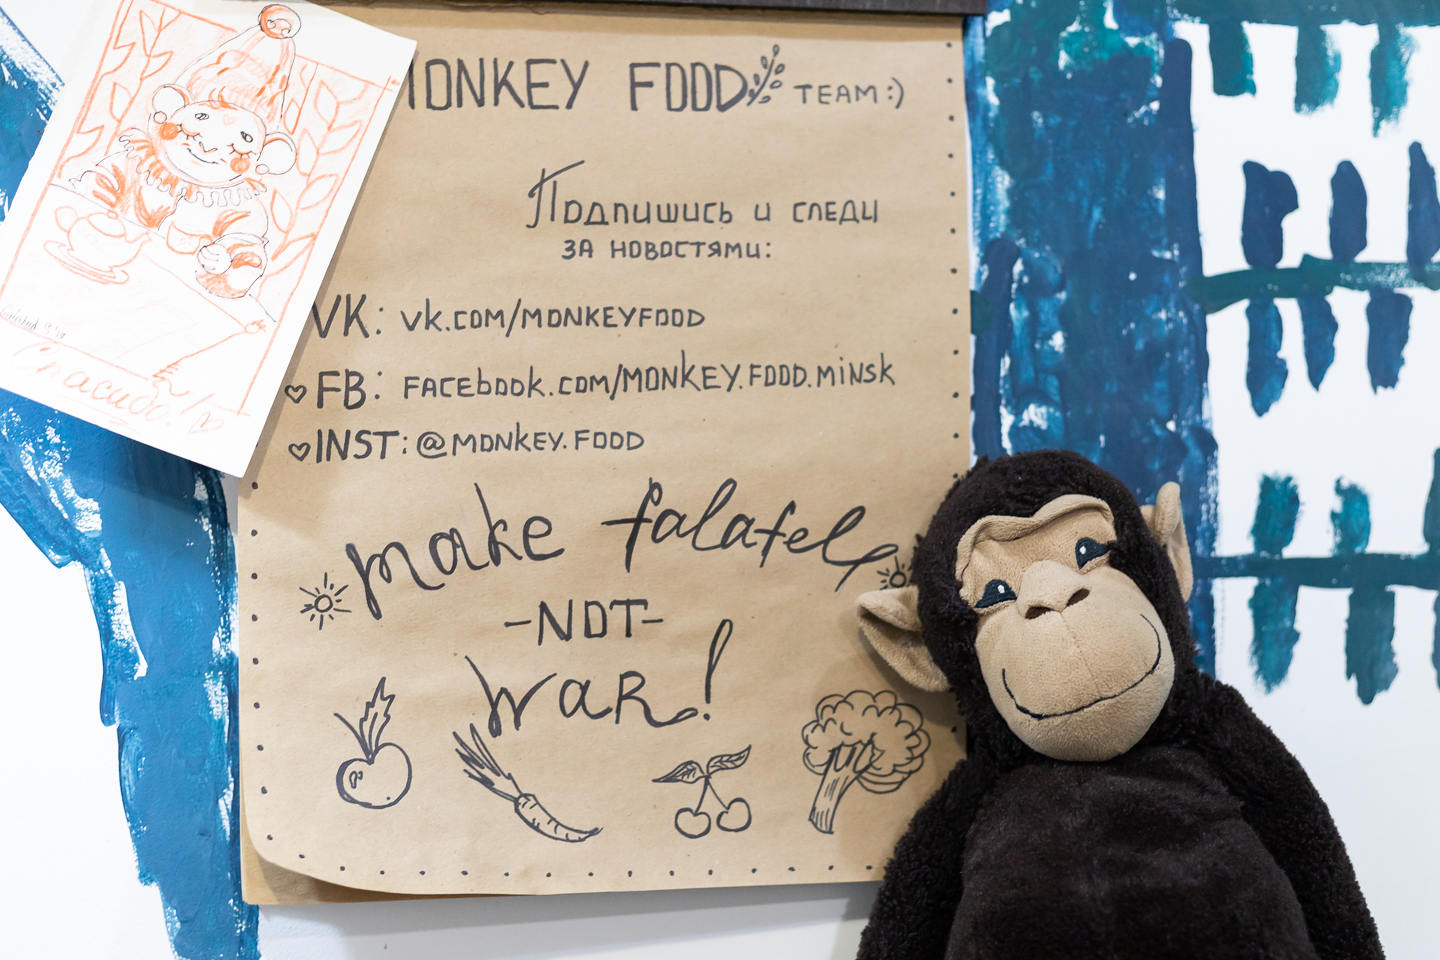 MONKEY FOOD TEAM:)
Подпишись и следи
за новостями:
VK: vk.com/MONKEYFOOD
FB: FACEbook.com/MONKEY.FOOD.MiNSK
INST: @MONKEY.FOOD
make falafel
-NOT-
WAR!
Спасибо!